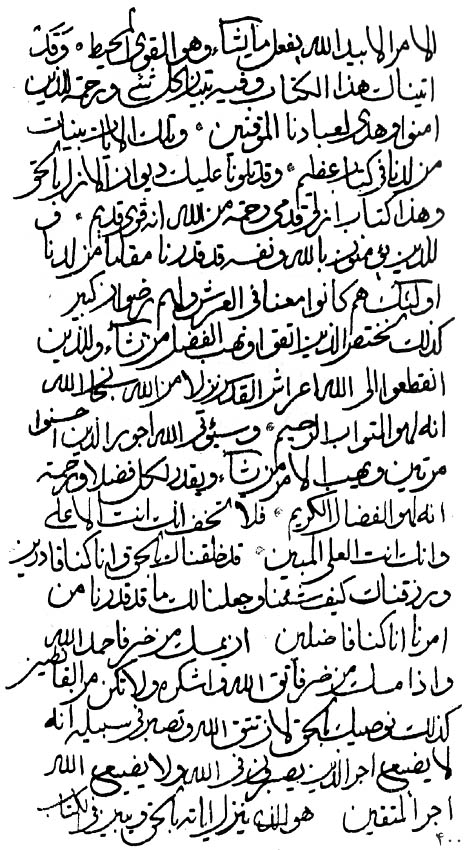 الامر الا بيد الله يفعل ما يشاء وهو القوى المحيط * وقد
اتيناك هذا الكتاب وفيه تبيان كل شئ ورحمة للذين
امنوا وهدى لعبادنا الموقنين * وتلك الايات بينات
من لدنا فى كتاب عظيم * وقد بلونا عليك ديوان الازل بالحق
وهذا كتاب ازلى قدمى رحمة من الله انه قوى قديم * و
للذين يؤمنون بالله ونفسه قد قدرنا مقاما من لدنا
اولئك هم كانوا معنا فى العرش ولهم رضوان كبير
كذلك نختص الذين اتقوا ونهب الفضل من نشاء وللذين
انقطعوا الى الله اعراش القدس نزلا من الله سبحان الله
انه لهو التواب الرحيم * وسيؤتى الله اجور الذين احسنوا
مرتين ويهب الامر من يشاء ويقدر لكل فضلا ورحمة
انه لهو الفضال الكريم * فلا تخف انك انت الاعلى
وانك انت العلى المبين * قد خلقناك بالحق وانا كنا قادرين
ورزقناك كيف شئنا وجعلنا لك ما قد قدرنا من
امرنا انا كنا فاضلين ان يمسك من خير فاحمد الله
واذا مسك من ضر فاتق الله واشكره ولا تكن من القانطين
كذلك نوصيك بالحق لان تتق الله وتصبر فى سبيله انه
لا يضيع اجر الذين يصبرون فى الله ولا يضيع الله
اجر المتقين هو الذى ينزل اياته بالحق ويبين فى الكتاب
۴۰۰